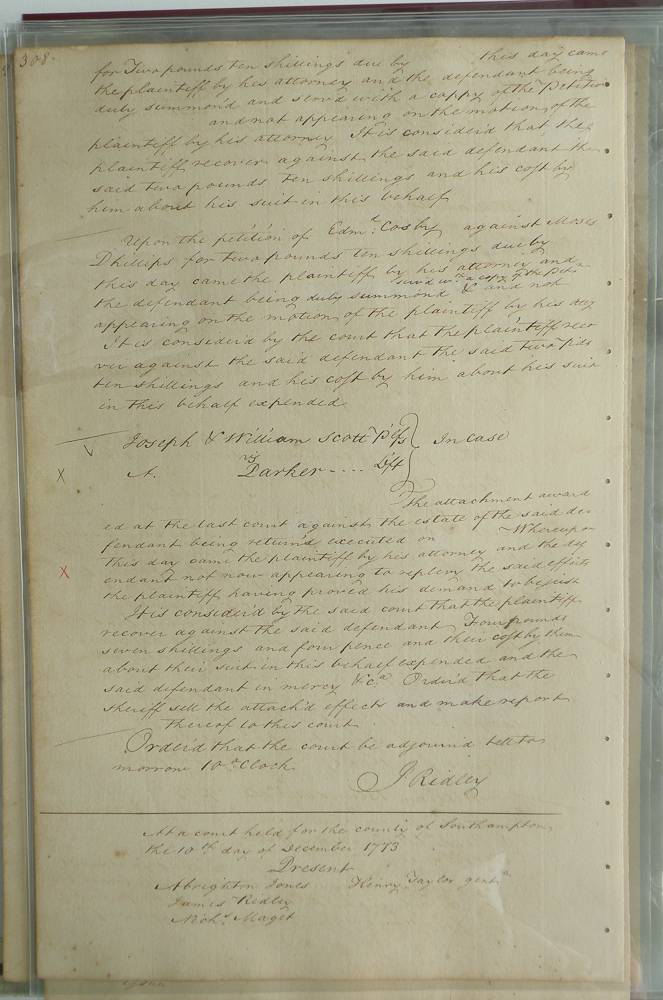 308.
for Two pounds ten shillings due by this day came
the plaintiff by his attorney and the defendant being
duly summon'd and serv'd with a coppy of the Petition
and not appearing on the motion of the
plaintiff by his attorney It is consider'd that the
plaintiff recover against the said defendant the
said two pounds ten shillings and his cost by
him about his suit in this behalf
Upon the petition of Edm.d Cosby against Moses
Phillips for two pounds ten shillings due by
this day came the plaintiff by his attorney and
serv'd wth a copy of the Petn
the defendant being duly summond & and not
appearing on the motion of the plaintiff by his atty
It is consider'd by the court that the plaintiff reco
ver against the said defendant the said two pds
ten shillings and his cost by him about his suit
in this behalf expended
Joseph & William Scott Plfs } In case
vs
A. Parker .... Dft }
The attachment award
ed at the last court against the estate of the said de
fendant being return'd executed on Whereupon
this day came the plaintiff by his attorney and the def
endant not now appearing to replevy the said effects
the plaintiff having proved his demand to be just
It is consider'd by the said court that the plaintiff
recover against the said defendant Four pounds
seven shillings and four pence and their cost by them
about their suit in this behalf expended and the
said defendant in mercy &ca Order'd that the
sheriff sell the attach'd effects and make report
thereof to this court
Order'd that the court be adjourn'd till to
morrow 10 oClock
J Ridley
At a court held for the county of Southampton
the 10th day of December 1773
Present
Albrighton Jones Henry Taylor gentn
James Ridley
Nichs Maget